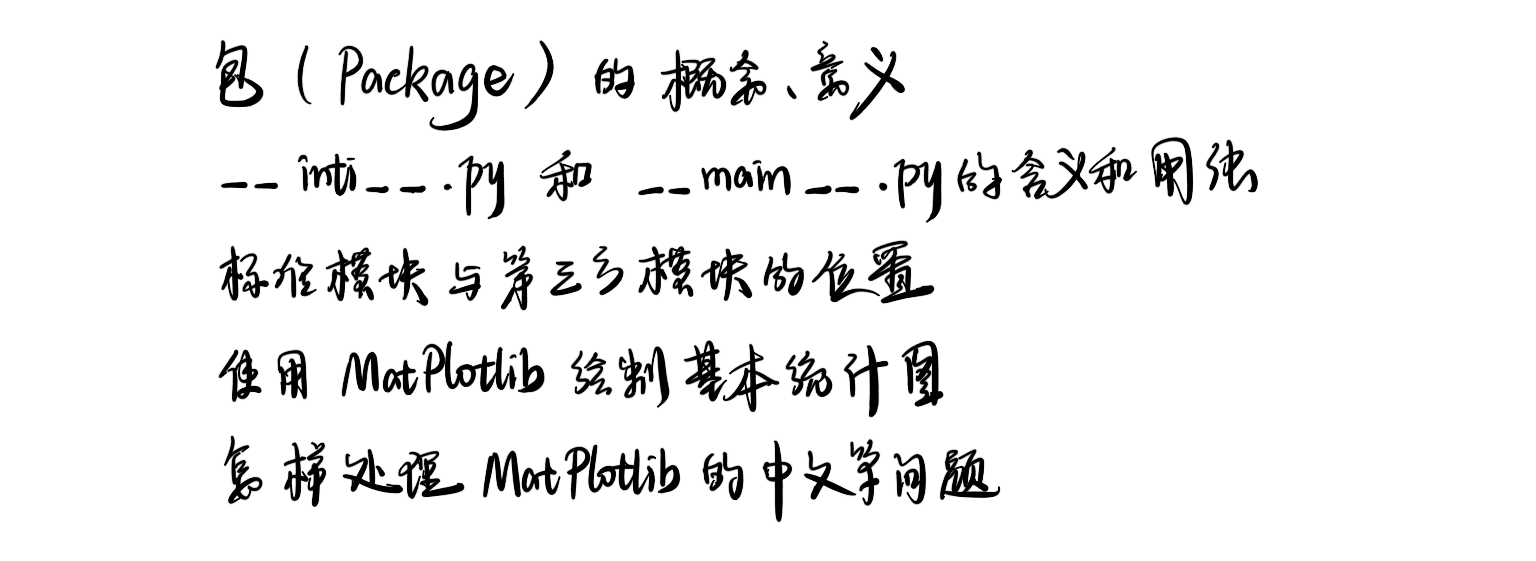 包（Package）的概念、意义
__inti__.py 和 __main__.py的含义和用法
标准模块与第三方模块的位置
使用 MatPlotlib 绘制基本统计图
怎样处理 MatPlotlib 的中文字问题